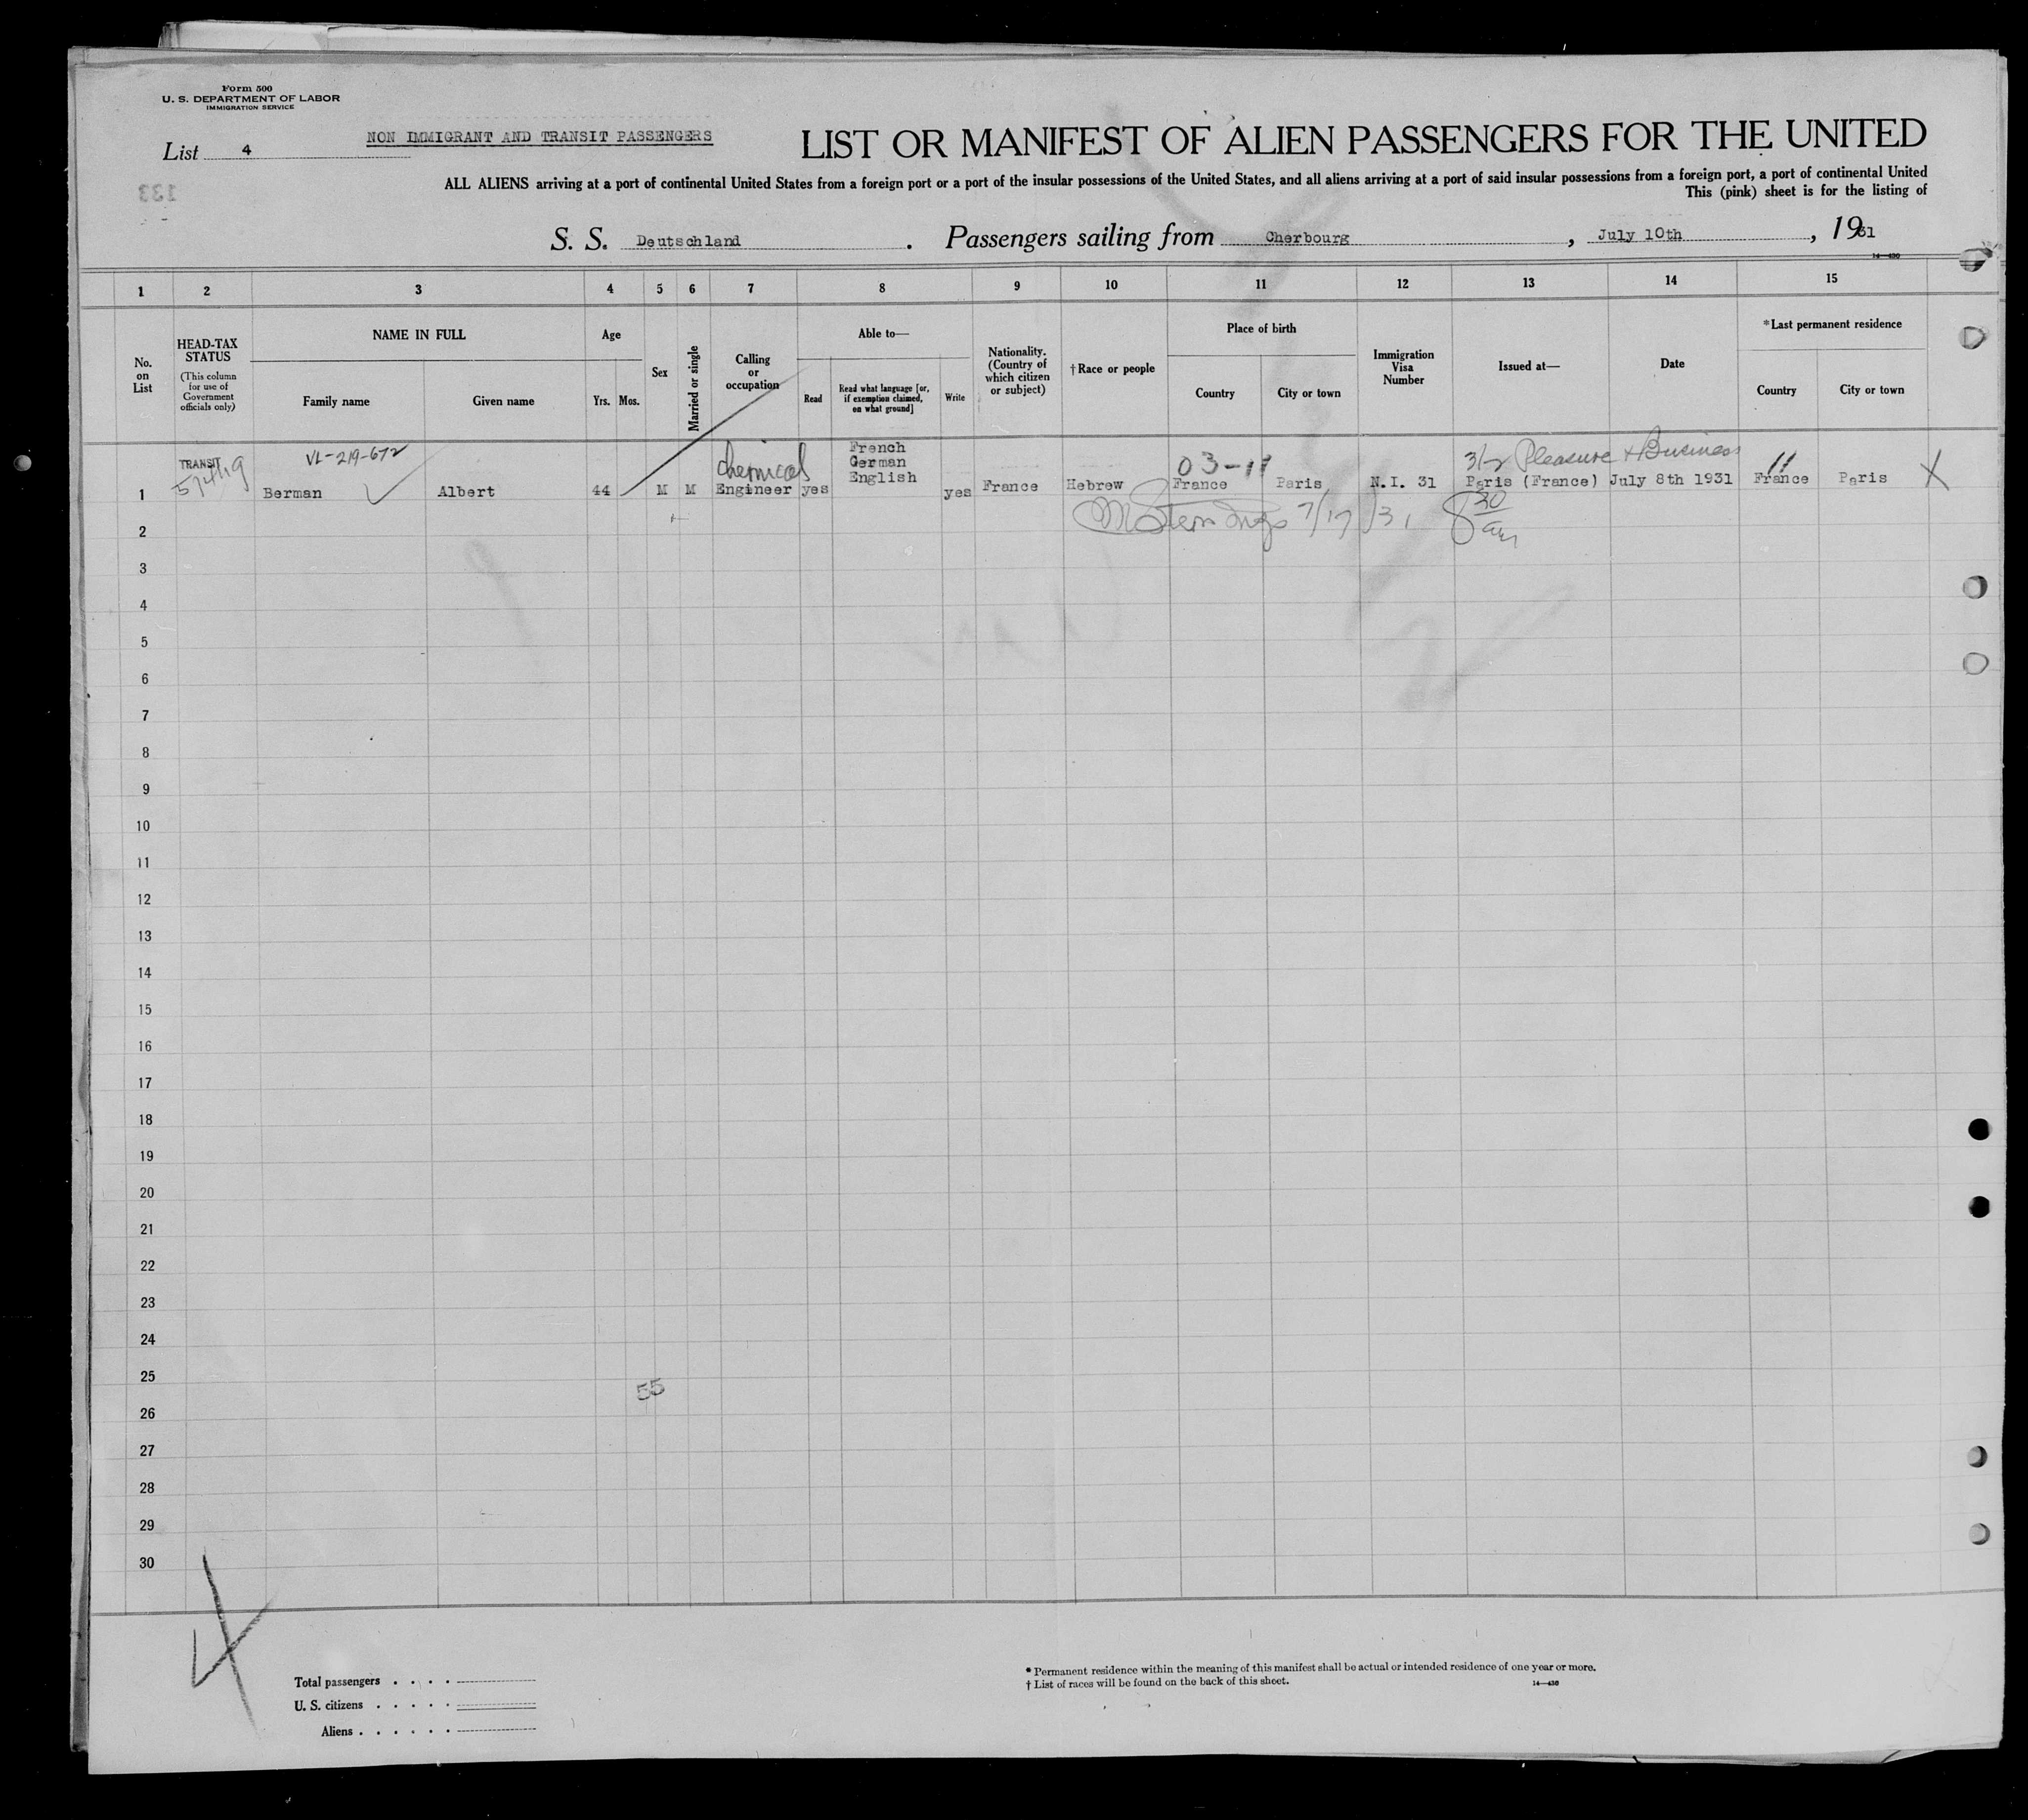 Form 500
U. S. DEPARTMENT OF LABOR
IMMIGRATION SERVICE
List 4
NON IMMIGRANT AND TRANSIT PASSENGERS
LIST OR MANIFEST OF ALIEN PASSENGERS FOR THE UNITED
ALL ALIENS arriving at a port of continental United States from a foreign port or a port of the insular possessions of the United States, and all aliens arriving at a port of said insular possessions from a foreign port, a port of continental United
This (pink) sheet is for the listing of
133
S. S. Deutschland . Passengers sailing from Cherbourg , July 10th , 1931
14—430
1 2 3 4 5 6 7 8 9 10 11 12 13 14 15
No. on List
HEAD-TAX STATUS
(This column for use of Government officials only)
NAME IN FULL
Family name Given name
Age
Yrs. Mos.
Sex
Married or single
Calling or occupation
Able to—
Read
Read what language [or, if exemption claimed, on what ground]
Write
Nationality. (Country of which citizen or subject)
†Race or people
Place of birth
Country City or town
Immigration Visa Number
Issued at—
Date
*Last permanent residence
Country City or town
TRANSIT VL-219-672 chemical French German English 03-11 3/2 Pleasure + Business 11
1 Berman Albert 44 M M Engineer yes yes France Hebrew France Paris N.I. 31 Paris (France) July 8th 1931 France Paris X
7/17/31 8 30 am
2
3
4
5
6
7
8
9
10
11
12
13
14
15
16
17
18
19
20
21
22
23
24
25
55
26
27
28
29
30
4
Total passengers . . . .
U. S. citizens . . . . .
Aliens . . . . . .
* Permanent residence within the meaning of this manifest shall be actual or intended residence of one year or more.
† List of races will be found on the back of this sheet.
14—430